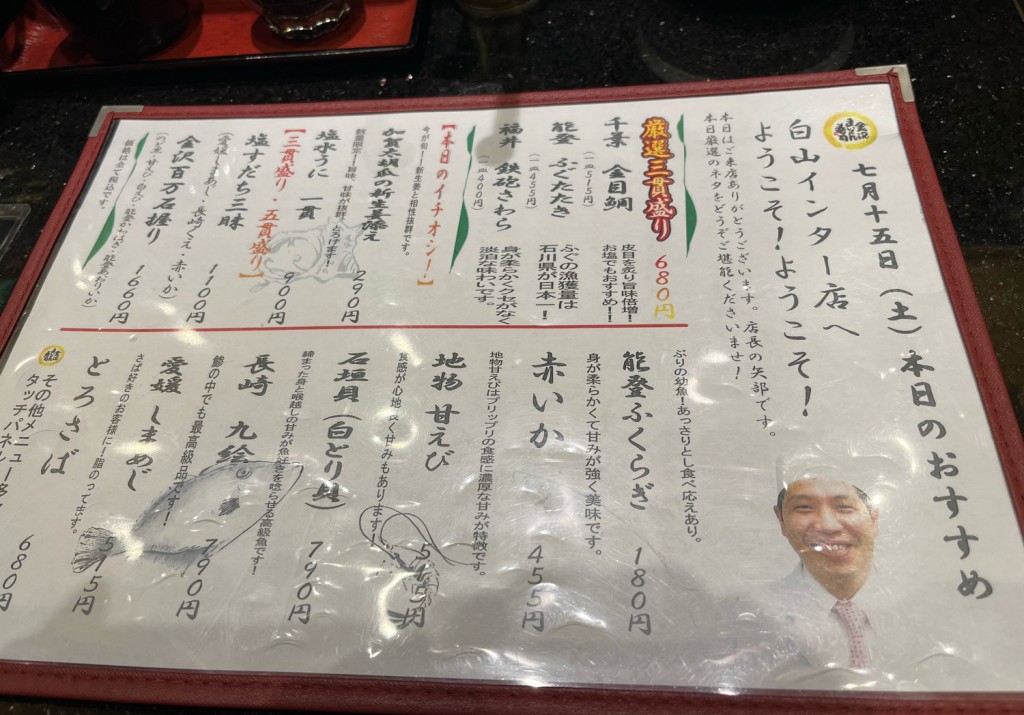 七月十五日（土）本日のおすすめ
白山インター店へ
ようこそ！ようこそ！
本日はご来店ありがとうございます。店長の矢部です。
本日厳選のネタをどうぞご堪能くださいませ！
厳選三貫盛り 680円
千葉 金目鯛
（一皿515円）
皮目を炙り旨味倍増！
お塩でもおすすめ！！
能登 ふぐたたき
（一皿455円）
ふぐの漁獲量は
石川県が日本一！
福井 鉄砲さわら
（一皿400円）
身が柔らかくクセがなく
淡泊な味わいです。
【本日のイチオシ！】
今が旬！！新生姜と相性抜群です。
加賀太胡瓜の新生姜添え 290円
数量限定！！旨味、甘味が抜群、とろけます！
塩水うに 一貫 900円
【三貫盛り・五貫盛り】
塩すだち三昧 1100円
（愛媛しまあじ・長崎くえ・赤いか）
金沢百万石握り 1660円
（のど黒・甘えび・白えび・能登あおりいか）
価格は全て税込です。
ぶりの幼魚！あっさりとし食べ応えあり。
能登ふくらぎ 180円
身が柔らかくて甘みが強く美味です。
赤いか 455円
地物甘えびはプリップリの食感に濃厚な甘みが特徴です。
地物 甘えび 515円
食感が心地良く甘みもあります！
石垣貝（白とり貝） 790円
締まった身と喉越しの甘みが魚好きを唸らせる高級魚です！
長崎 九絵 790円
鯵の中でも最高級品です！
愛媛 しまあじ 515円
さば好きのお客様に！脂のってます。
とろさば 680円
その他メニュー
タッチパネル